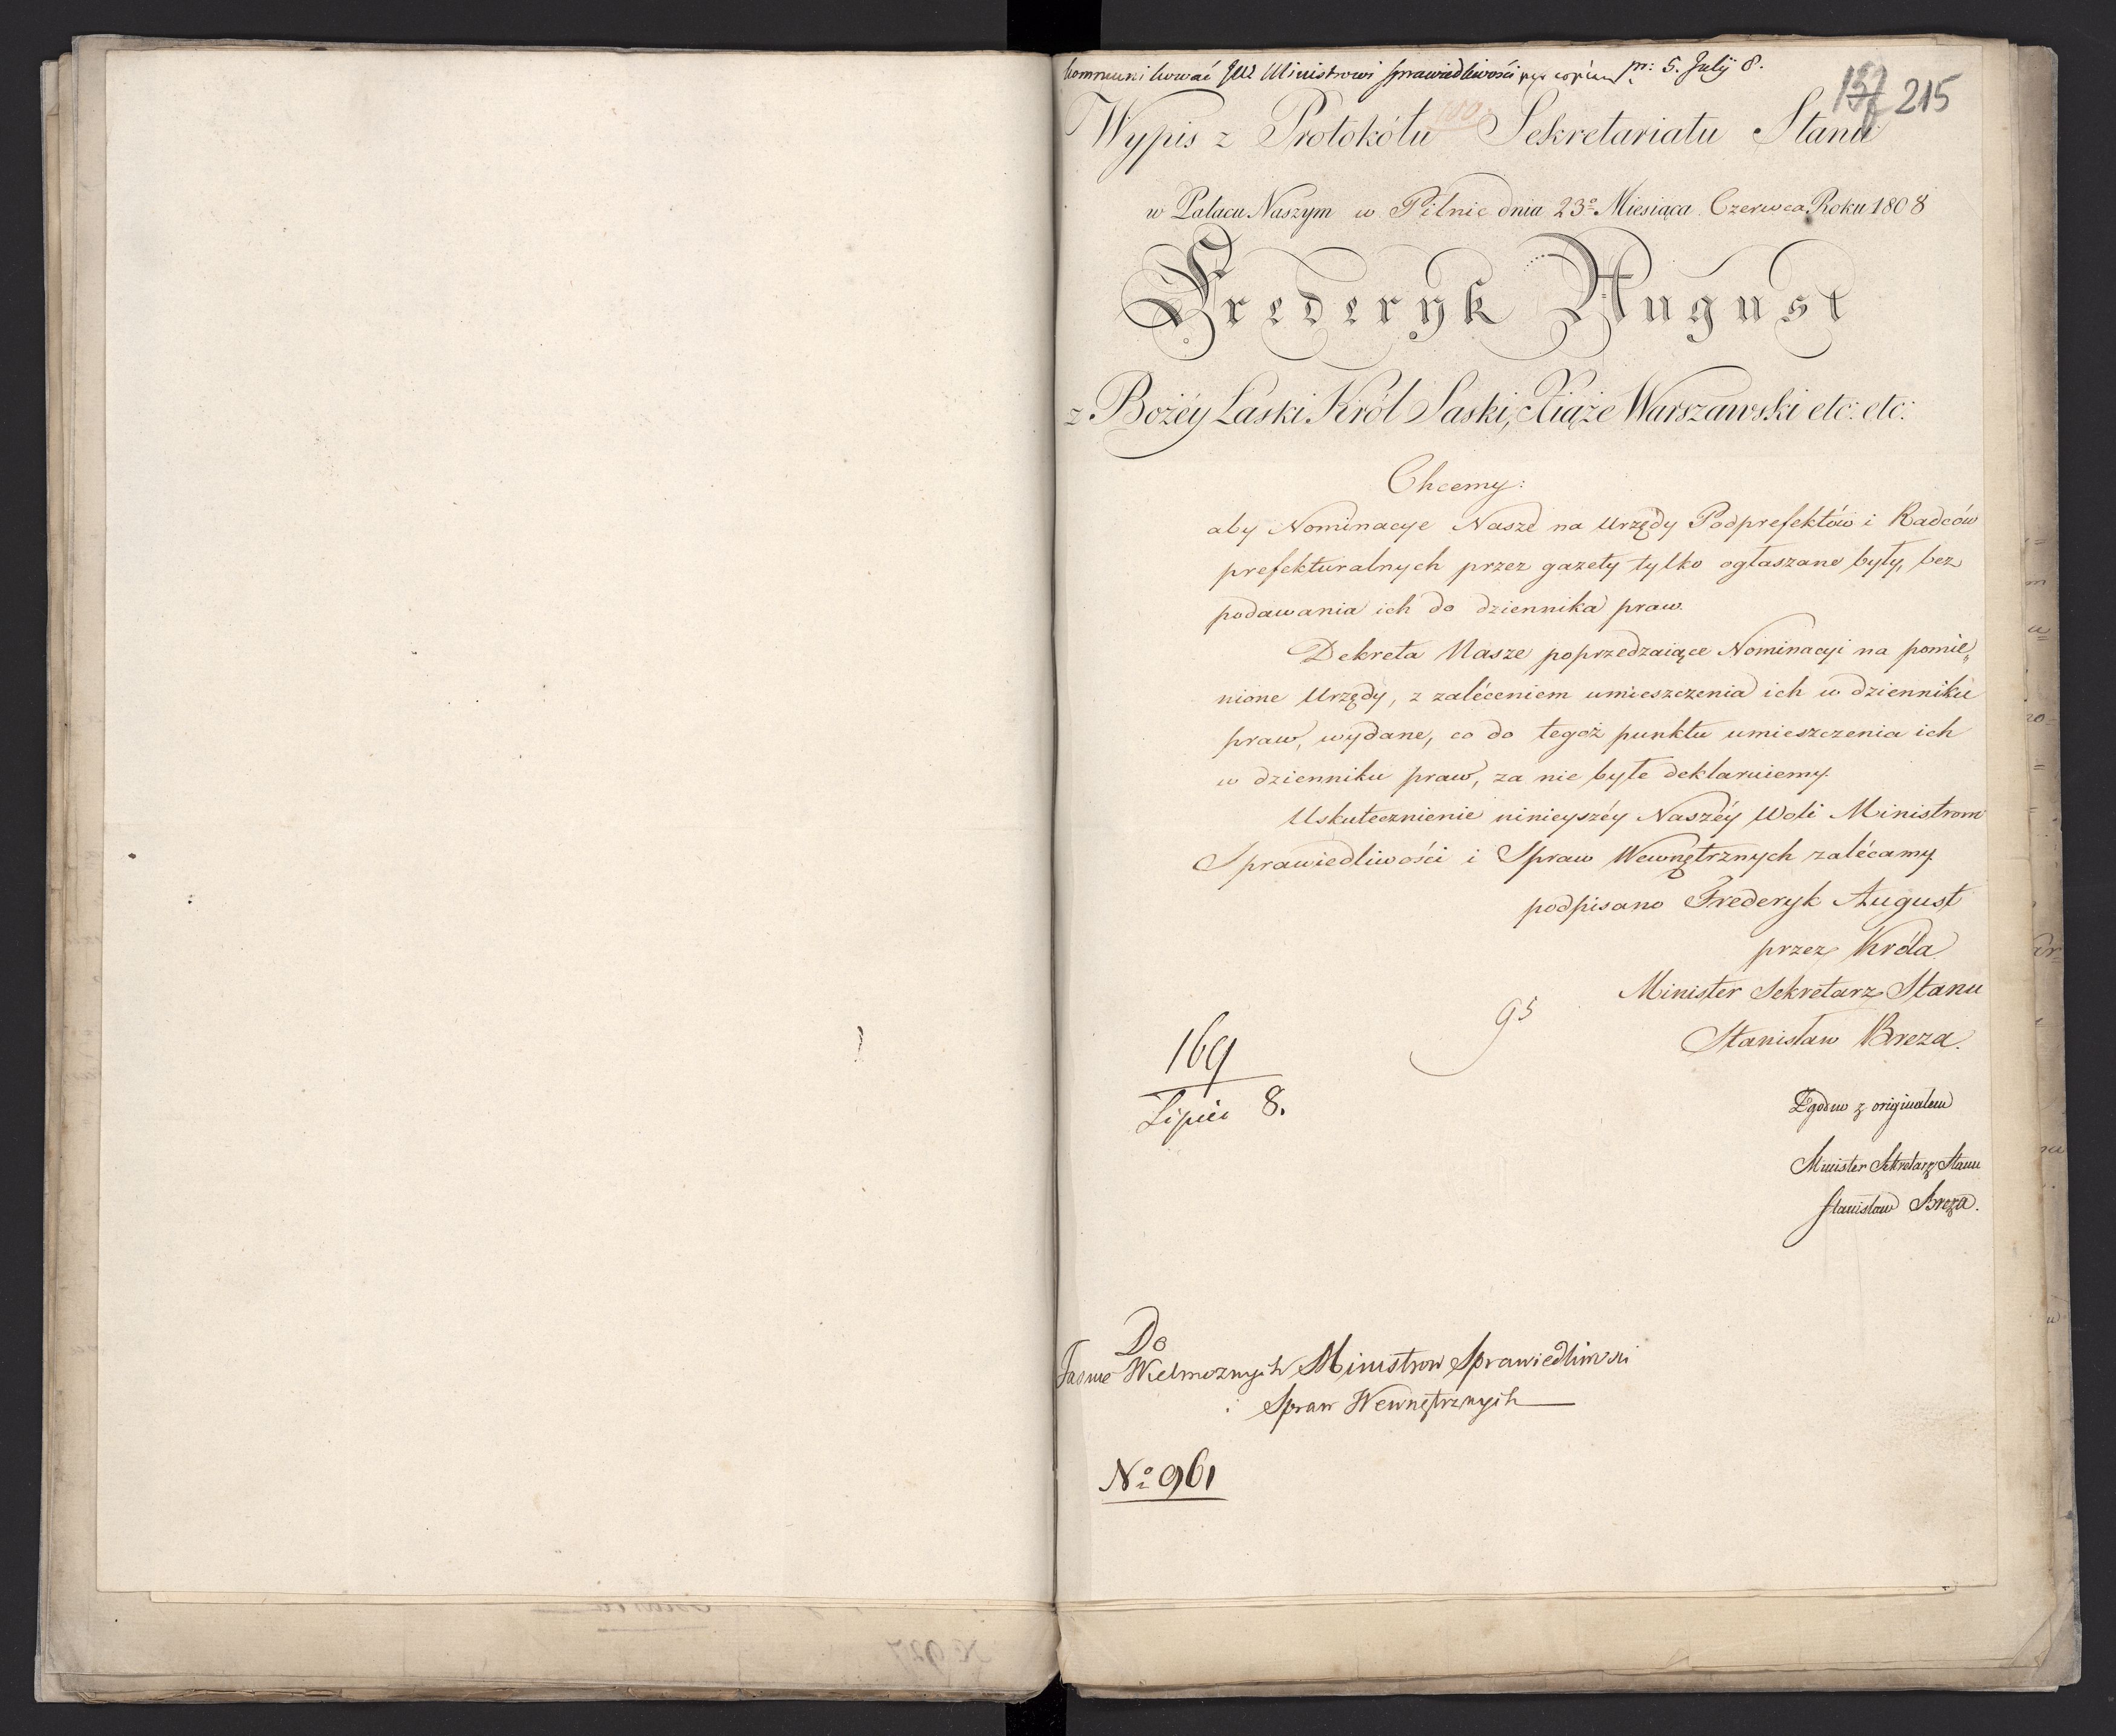 kommunikować JW Ministrowi Sprawiedliwości per copiam pr: 5. July 8.
215
100
Wypis z Protokółu Sekretariatu Stanu
w Pałacu Naszym w Pilnic dnia 23º Miesiąca Czerwca Roku 1808
Frederyk August
z Bożéy Łaski Król Saski, Xiąże Warszawski etc: etc:
Chcemy:
aby Nominacye Nasze na Urzędy Podprefektów i Radców
prefekturalnych przez gazety tylko ogłaszane były, bez
podawania ich do dziennika praw.
Dekreta Nasze poprzedzaiące Nominacyi na pomie„
nione Urzędy, z zaléceniem umieszczenia ich w dzienniku
praw, wydane, co do tegoż punktu umieszczenia ich
w dzienniku praw, za nie byłe deklaruiemy.
Uskutecznienie ninieyszéy Naszéy Woli Ministrom
Sprawiedliwości i Spraw Wewnętrznych zalécamy.
podpisano Frederyk August
przez Króla
Minister Sekretarz Stanu
Stanisław Breza.
95
169
Lipiec 8.
Zgodno z originałem
Minister Sekretarz Stanu
Stanisław Breza.
Do
Jasnie Wielmoznych Ministrow Sprawiedliwosci
i Spraw Wewnętrznych
Nº 961
Nº 927